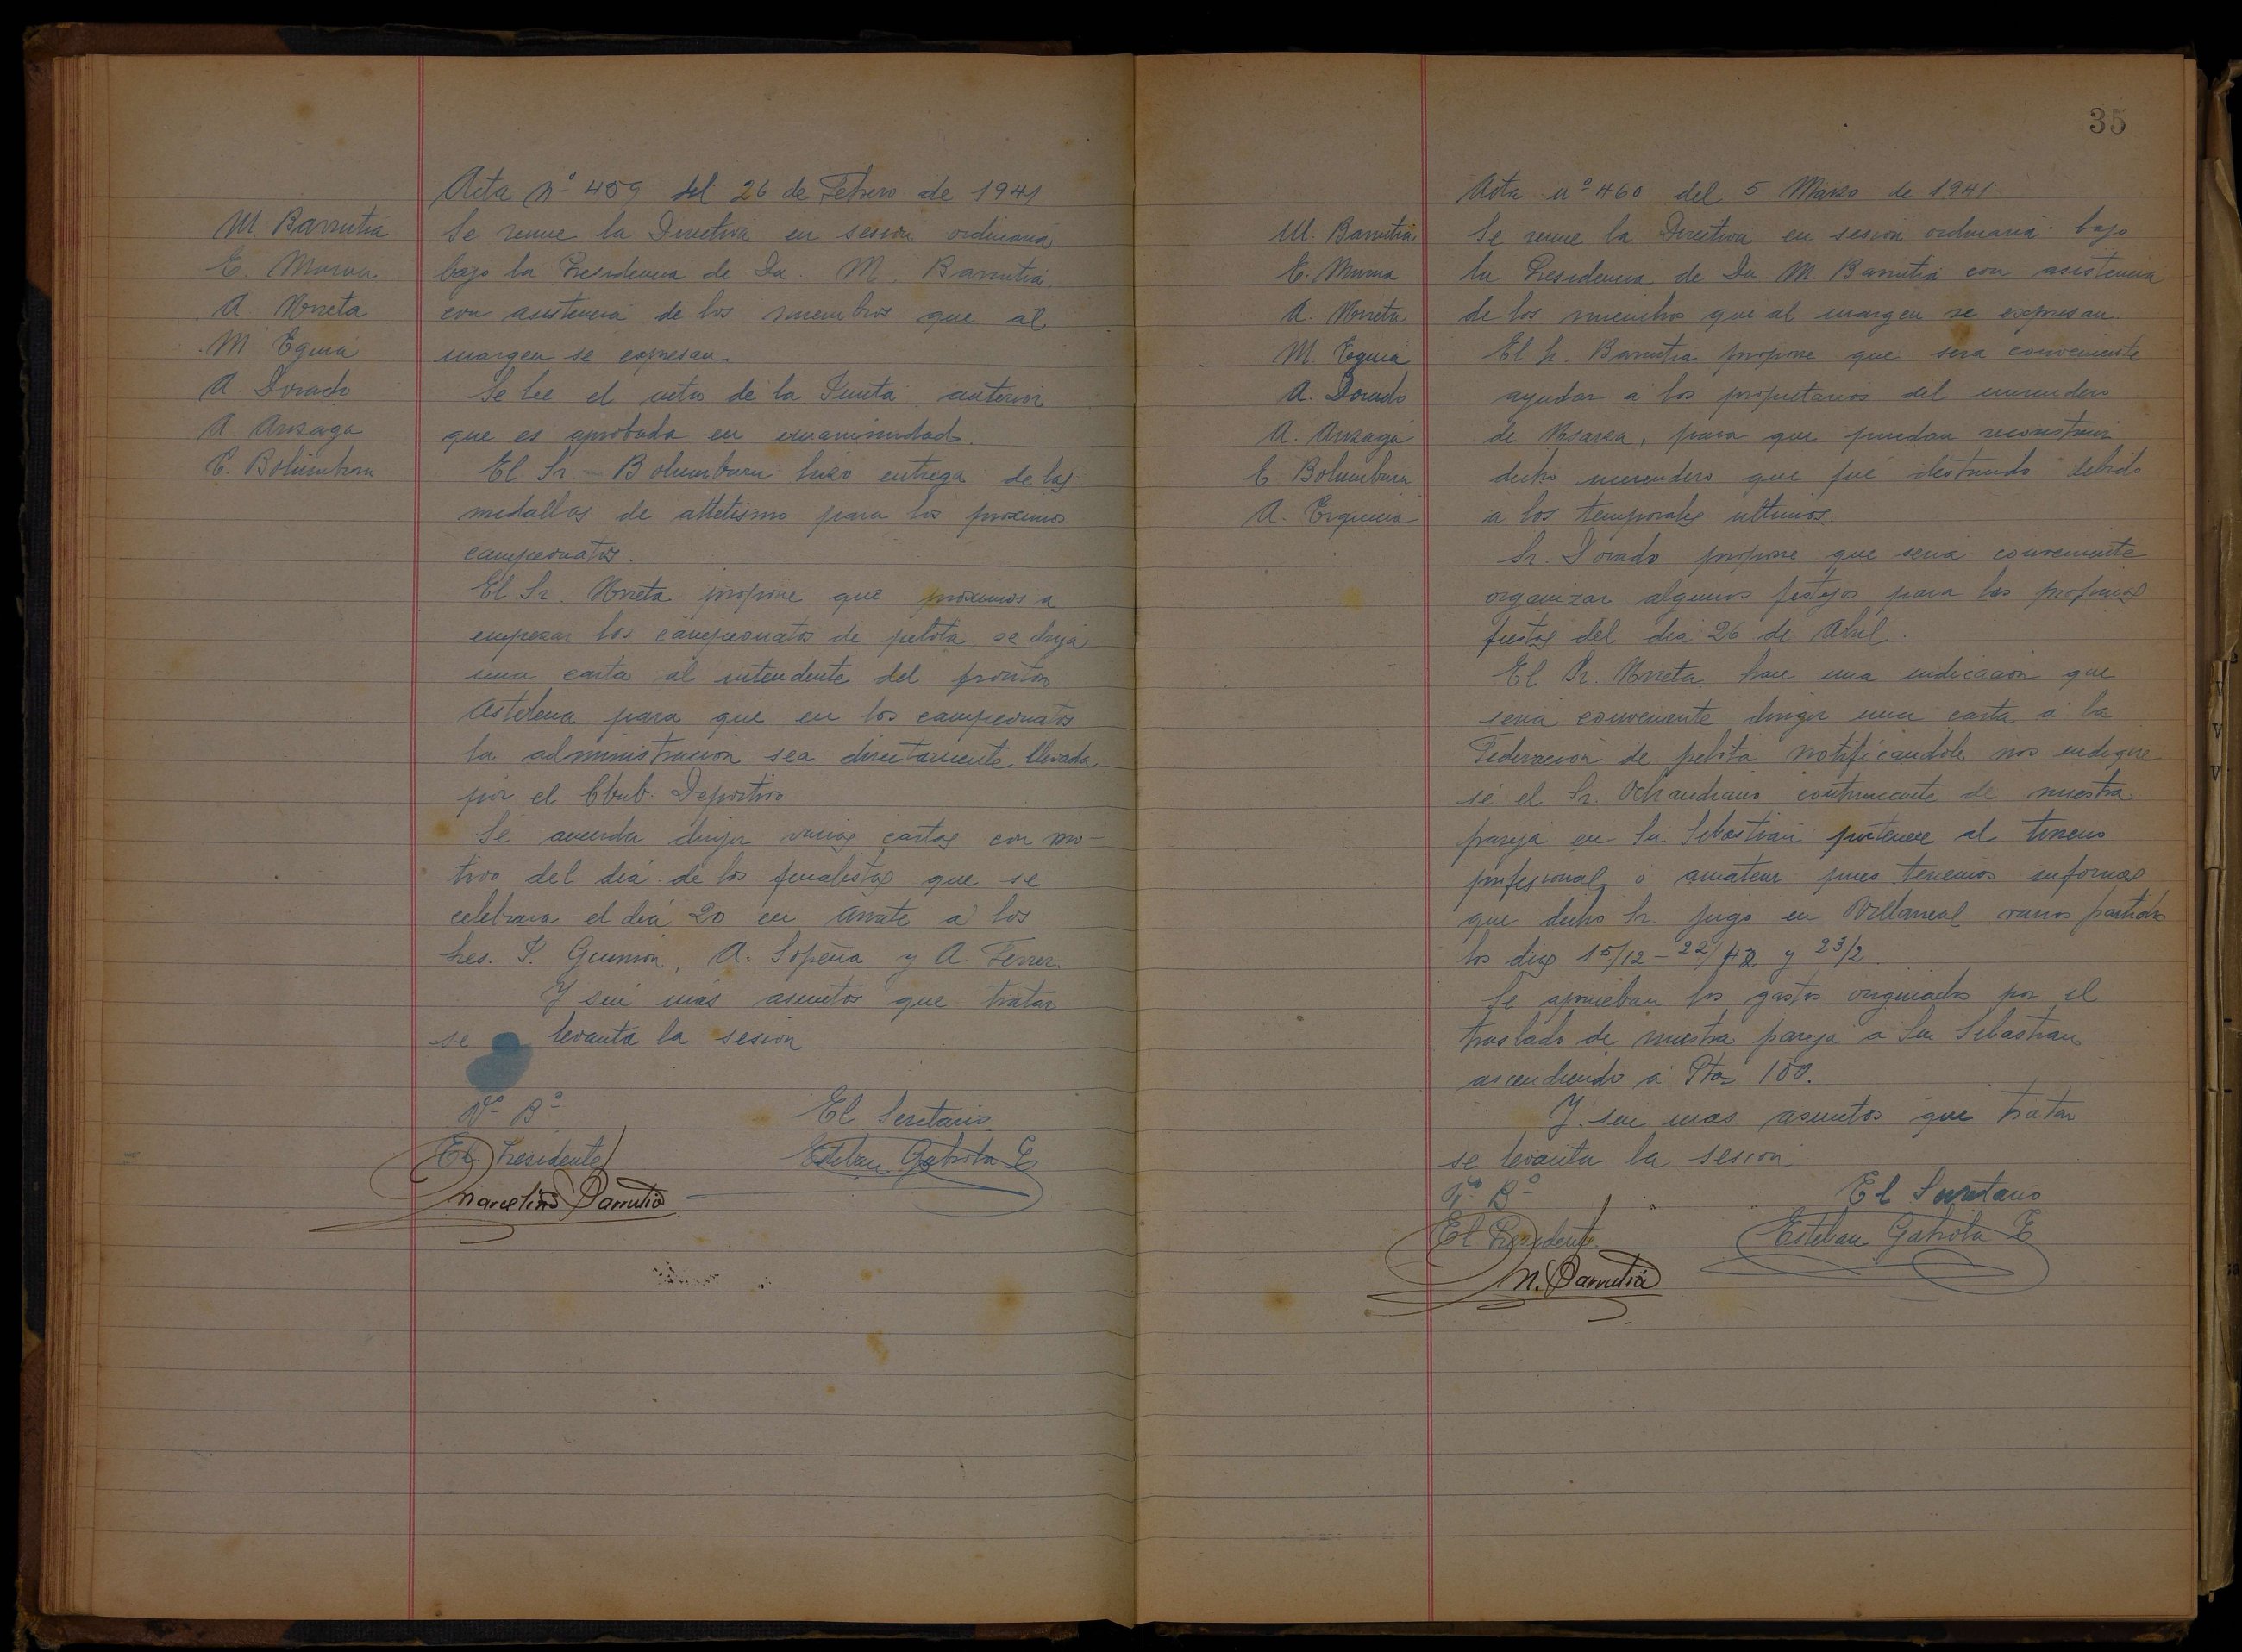 Acta nº 459 del 26 de Febrero de 1941
M Barrutia
E. Murua
A Urreta
M Eguia
A. Dorado
A. Anzaga
E. Bolumburu
Se reune la Directiva en sesion ordinaria
bajo la Presidencia de Dn. M. Barrutia,
con asistencia de los miembros que al
margen se expresan.
Se lee el acta de la Junta anterior
que es aprobada en unanimidad.
El Sr. Bolumburu hizo entrega de las
medallas de atletismo para los proximos
campeonatos.
El Sr. Urreta propone que proximos a
empezar los campeonatos de pelota se dirija
una carta al intendente del fronton
Astelena para que en los campeonatos
la administracion sea directamente llevada
por el Club. Deportivo
Se acuerda dirijir varias cartas con mo-
tivo del dia de los finalistas que se
celebrara el dia 20 en Arrate a los
Sres. A. Sopeña y A. Ferrer.
Y sin mas asuntos que tratar
se levanta la sesion
Vº Bº
El Secretario
El Presidente
Esteban Gabiola
Marcelino Barrutia
35
Acta nº 460 del 5 Marzo de 1941
M. Barrutia
E. Murua
A. Urreta
M. Eguia
A. Dorado
A. Anzaga
E Bolumburu
A.
Se reune la Directiva en sesion ordinaria bajo
la Presidencia de Dn. M. Barrutia con asistencia
de los miembros que al margen se expresan.
El Sr. Barrutia propone que sera conveniente
ayudar a los propietarios del merendero
de para que puedan reconstruir
dicho merendero que fue destruido debido
a los temporales ultimos.
Sr. Dorado propone que seria conveniente
organizar algunos festejos para las proximas
fiestas del dia 26 de Abril.
El Sr. Urreta hace una indicacion que
seria conveniente dirigir una carta a la
Federacion de pelota notificandole nos indique
si el Sr. Ochandiano contrincante de nuestra
pareja en Sn. Sebastian pertenece al terreno
profesional o amateur pues tenemos informes
que dicho Sr. jugo en Villarreal varios partidos
los dias 15/12 - 22/12 y 23/2.
Se aprueban los gastos originados por el
traslado de nuestra pareja a Sn Sebastian
ascendiendo a Ptas 100.
Y sin mas asuntos que tratar
se levanta la sesion
Vº Bº
El Secretario
El Presidente
Esteban Gabiola
M. Barrutia